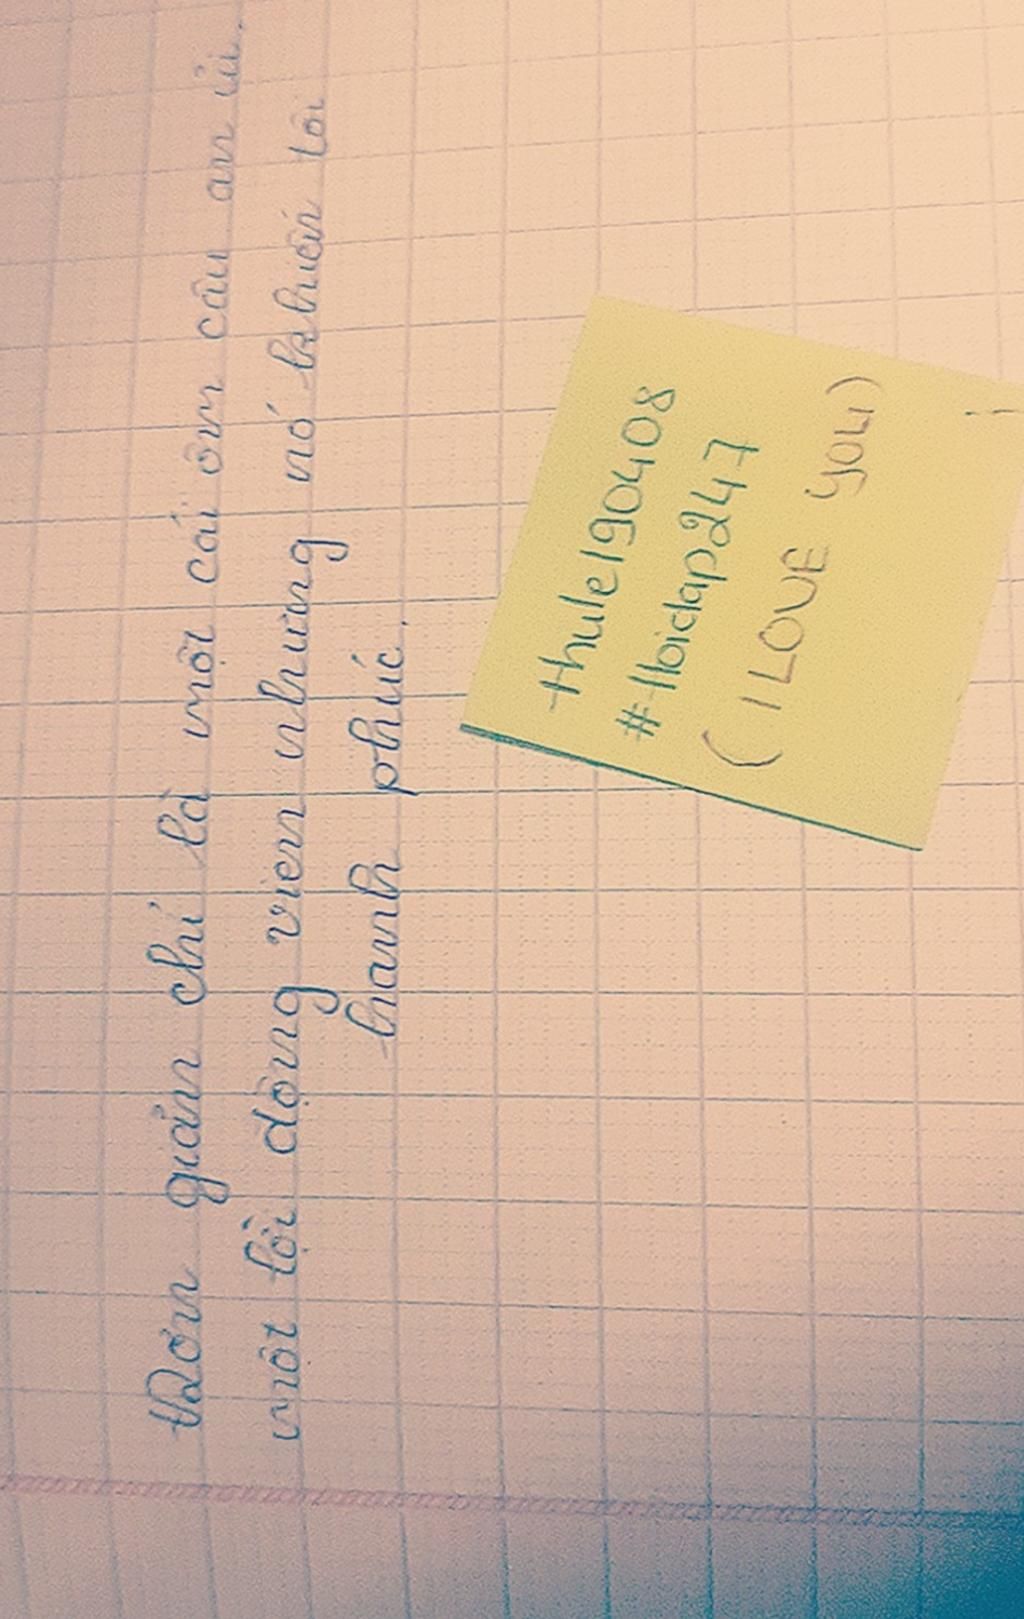 Đơn giản chỉ là một cái ôm câu an ủi.
một lời động viên nhưng nó khiến tôi
hạnh phúc.
thule190408
#11oidap247
( I LOVE you)